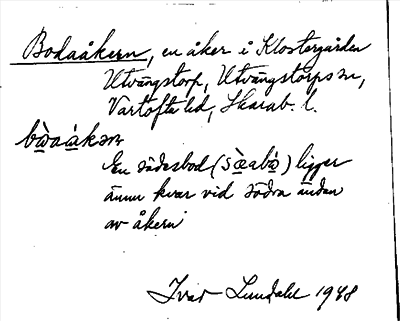 Bodaåkern, en åker i Klostergården
Utvängstorp, Utvängstorps sn,
Vartofta hd, Skarab. l.
bὼaákəɲ
En sädesbod (sæ̀abὼ) ligger
ännu kvar vid södra änden
av åkern
Ivar Lundahl 1948